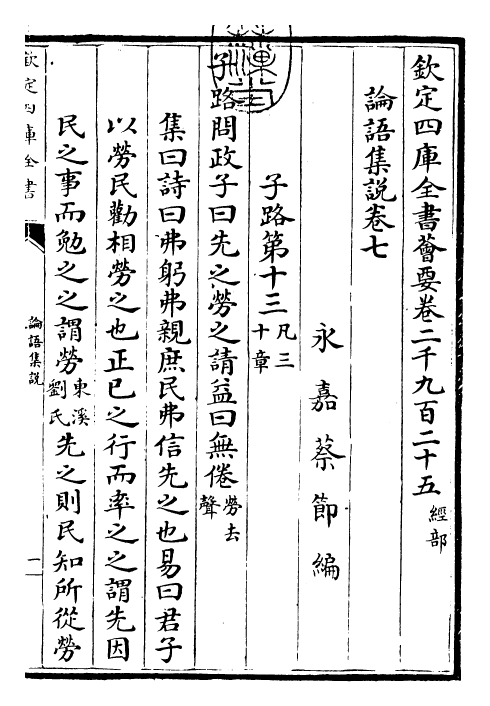 欽定四庫全書薈要卷二千九百二十五 經部
論語集說卷七
永嘉蔡節編
子路第十三 凡三十章
子路問政子曰先之勞之請益曰無倦 勞去聲
集曰詩曰弗躬弗親庶民弗信先之也易曰君子
以勞民勸相勞之也正已之行而率之之謂先因
民之事而勉之之謂勞 東溪劉氏 先之則民知所從勞
欽定四庫全書
論語集說
一